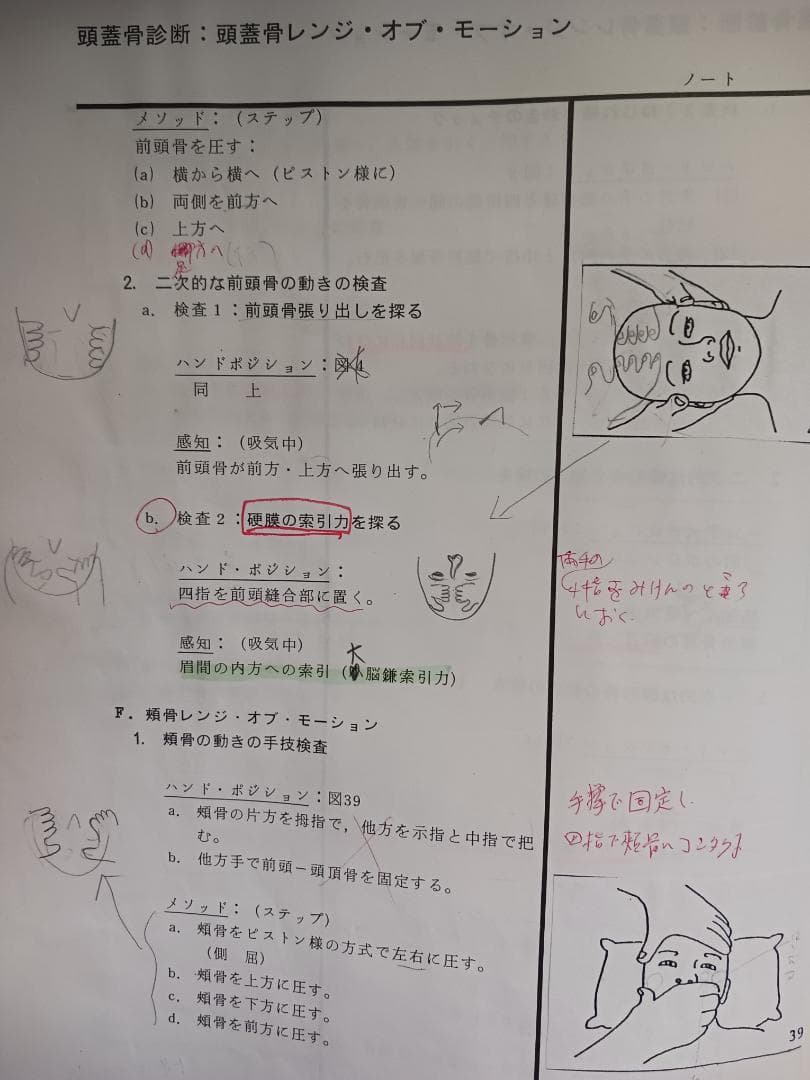 頭蓋骨診断：頭蓋骨レンジ・オブ・モーション
ノート
メソッド：（ステップ）
前頭骨を圧す：
(a) 横から横へ（ピストン様に）
(b) 両側を前方へ
(c) 上方へ
(d) 方へ
2. 二次的な前頭骨の動きの検査
a. 検査1：前頭骨張り出しを探る
ハンドポジション：図
同 上
感知：（吸気中）
前頭骨が前方・上方へ張り出す。
b. 検査2：硬膜の索引力を探る
ハンド・ポジション：
四指を前頭縫合部に置く。
両手の
4指をみけんの
におく
感知：（吸気中）
眉間の内方への索引（大脳鎌索引力）
F. 頬骨レンジ・オブ・モーション
1. 頬骨の動きの手技検査
ハンド・ポジション：図39
a. 頬骨の片方を拇指で，他方を示指と中指で把
む。
b. 他方手で前頭－頭頂骨を固定する。
手掌で固定し
四指で頬骨にコンタクト
メソッド：（ステップ）
a. 頬骨をピストン様の方式で左右に圧す。
（側 屈）
b. 頬骨を上方に圧す。
c. 頬骨を下方に圧す。
d. 頬骨を前方に圧す。
39